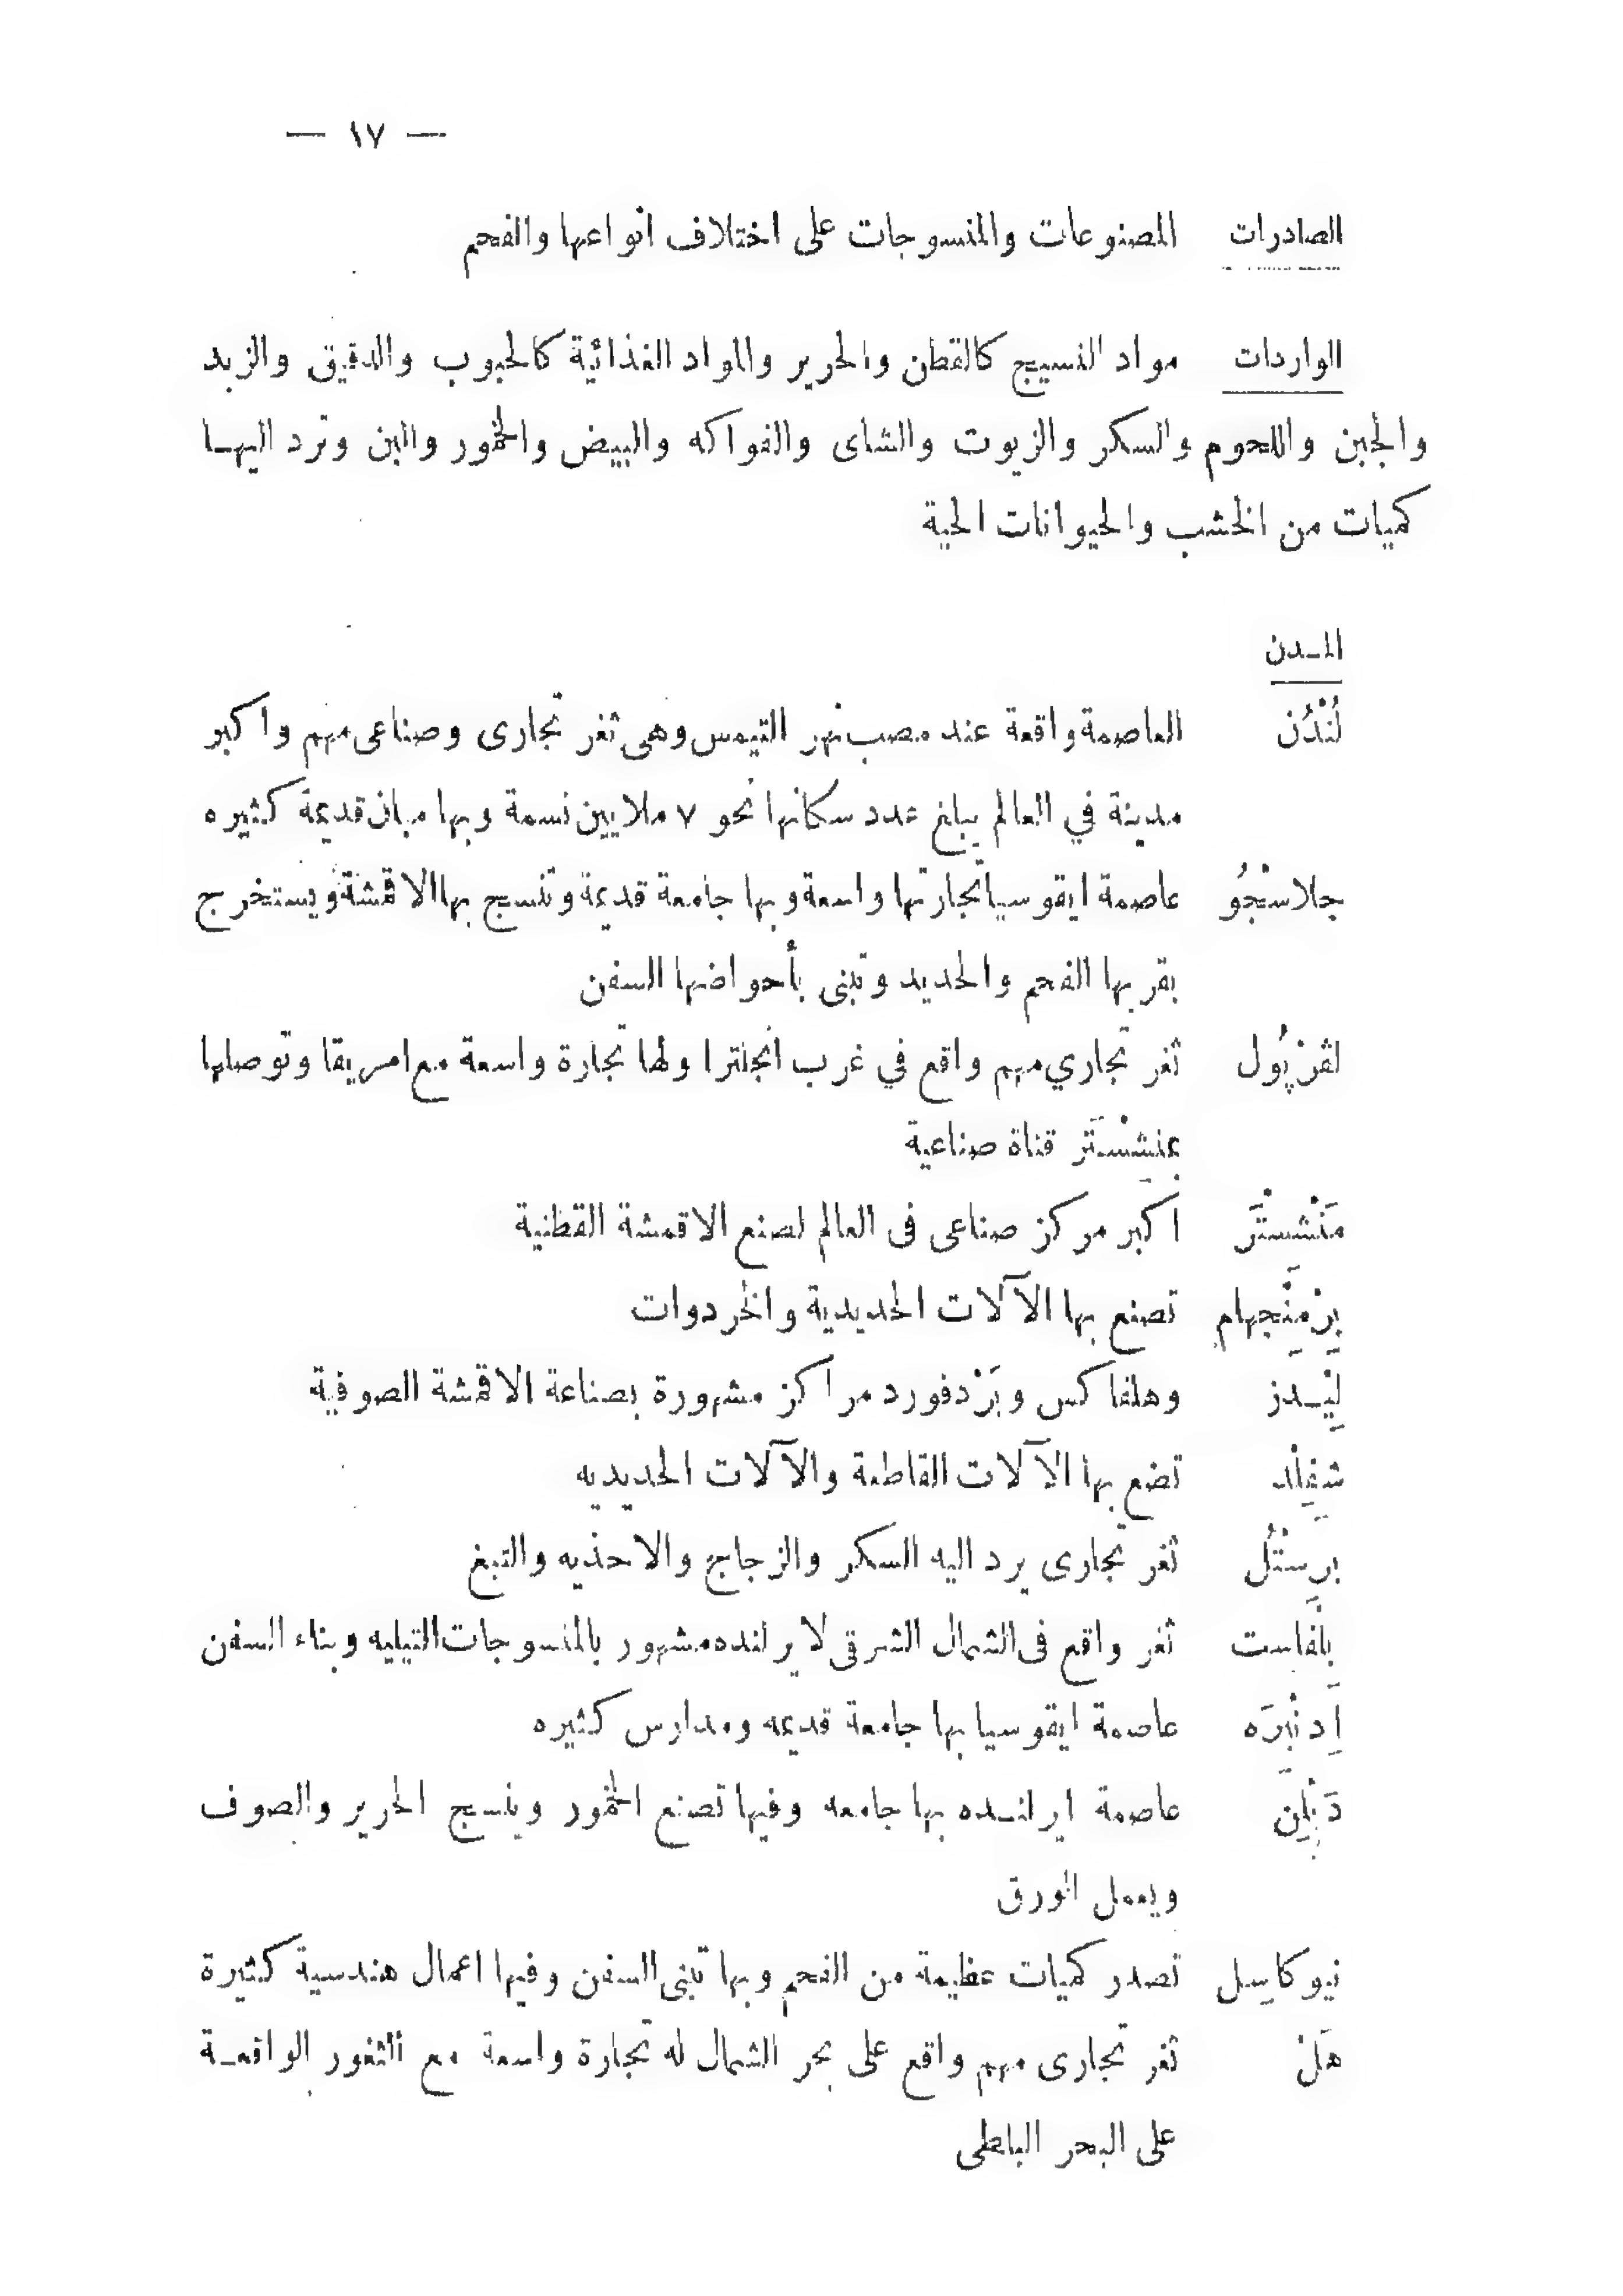 — ١٧ —
الصادرات المصنوعات والمنسوجات على اختلاف انواعها والفحم
الواردات مواد النسيج كالقطن والحرير والمواد الغذائية كالحبوب والدقيق والزبد
والجبن واللحوم والسكر والزيوت والشاى والفواكه والبيض والخمور والبن وترد اليها
كميات من الخشب والحيوانات الحية
المدن
لُنْدُن العاصمة واقعة عند مصب نهر التيمس وهى ثغر تجارى وصناعى مهم واكبر
مدينة في العالم يبلغ عدد سكانها نحو ٧ ملايين نسمة وبها مبان قديمة كثيره
جلاسْجُو عاصمة ايقوسيا تجارتها واسعة وبها جامعة قديمة وتنسج بها الاقمشة ويستخرج
بقربها الفحم والحديد وتبنى بأحواضها السفن
لفربُول ثغر تجاري مهم واقع في غرب انجلترا ولها تجارة واسعة مع امريقا وتوصلها
بمنشسْتَر قناة صناعية
مَنْشسْتَر اكبر مركز صناعى فى العالم لصنع الاقمشة القطنية
بِرْمِنْجهام تصنع بها الآلات الحديدية والخردوات
لِيْدز وهلفاكس وبَرْدفورد مراكز مشهورة بصناعة الاقمشة الصوفية
شفِلْد تضع بها الآلات القاطعة والآلات الحديديه
برِسْتُل ثغر تجارى يرد اليه السكر والزجاج والاحذيه والتبغ
بِلْفاست ثغر واقع فى الشمال الشرقى لايرلنده مشهور بالمنسوجات التيليه وبناء السفن
اِدِنْبرَه عاصمة ايقوسيا بها جامعة قديمه ومدارس كثيره
دَبْلِن عاصمة ايرلنده بها جامعه وفيها تصنع الخمور وينسج الحرير والصوف
ويعمل الورق
نيوكاسِل تصدر كميات عظيمة من الفحم وبها تبنى السفن وفيها اعمال هندسية كثيرة
هَلْ ثغر تجارى مهم واقع على بحر الشمال له تجارة واسعة مع الثغور الواقعة
على البحر البلطى